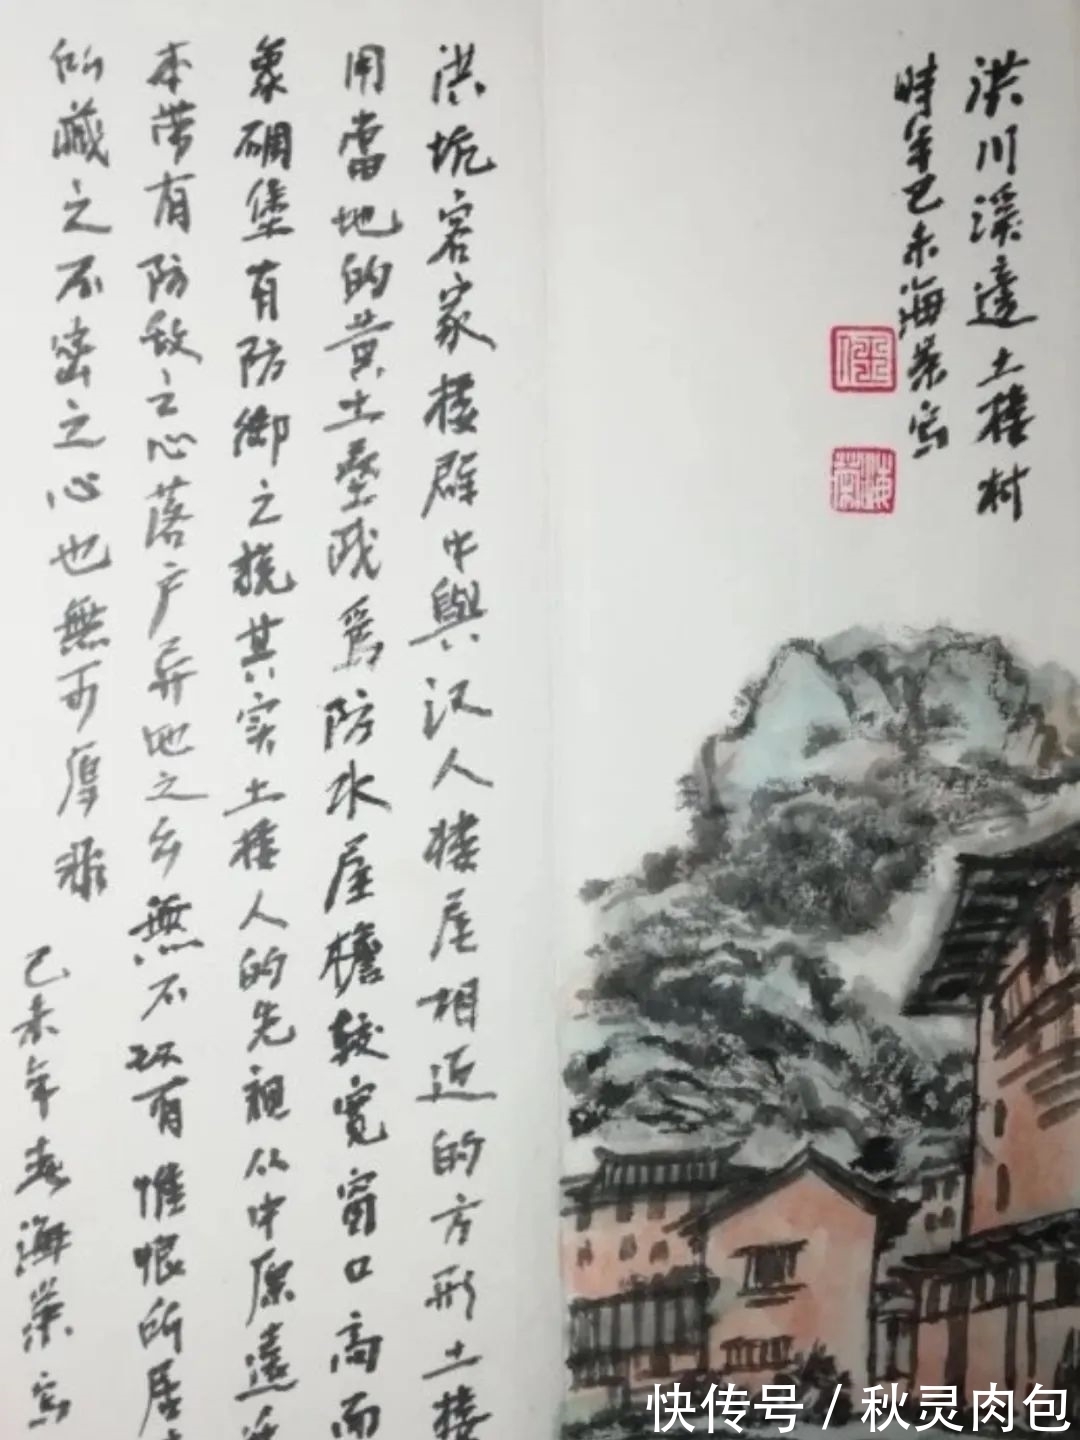 洪川溪邊土樓村
時年己未海荣写
海荣
洪坑客家楼群中與汉人楼屋相近的方形土楼
用當地的黄土壘成爲防水屋檐較寬窗口高而
象碉堡有防御之其实土楼人的先祖从中原遠
本带有防敌之心落户异地之乡無不有惟恨所居
的藏之不密之心也無可厚非
己未年春海荣写
快传号 / 秋灵肉包